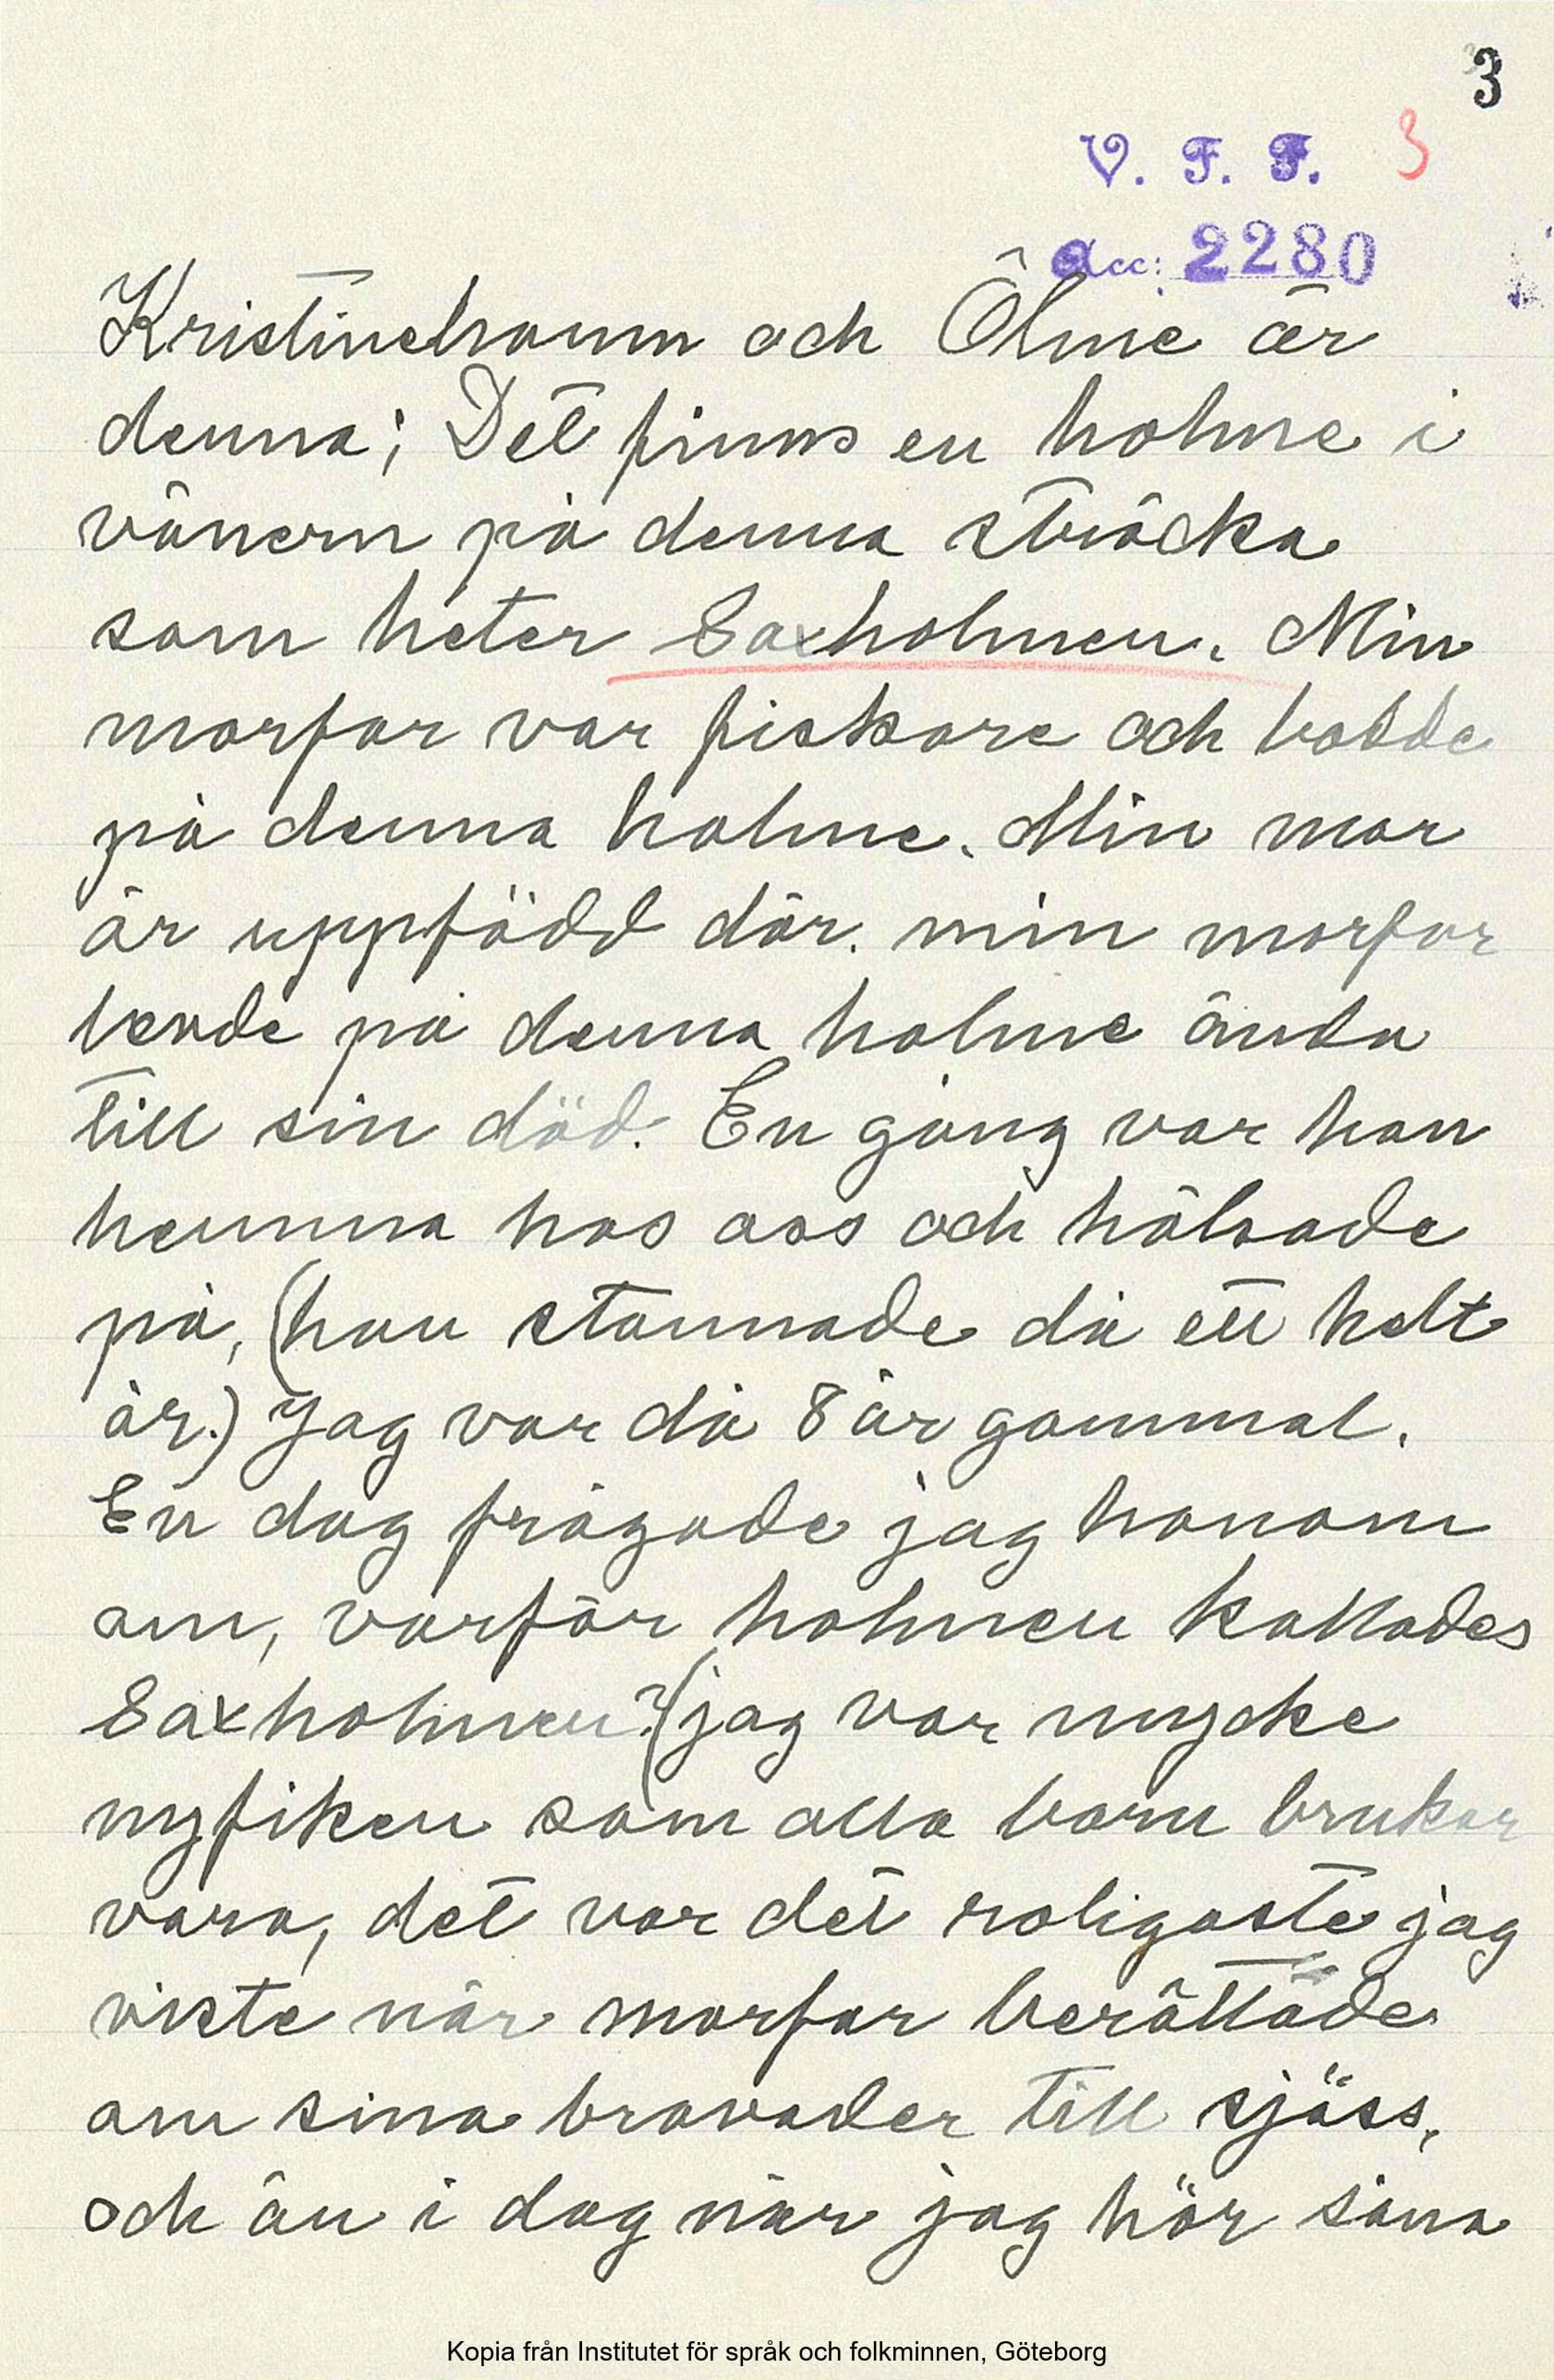 3
V. F. F. 3
Acc: 2280
Kristinehamn och Ölme är
denna; Det finns en holme i
vänern på denna sträcka
som heter Saxholmen. Min
morfar var fiskare och bodde
på denna holme. Min mor
är uppfödd där. min morfar
levde på denna holme ända
till sin död. En gång var han
hemma hos oss och hälsade
på, (han stannade då ett helt
år.) Jag var då 8 år gammal.
En dag frågade jag honom
om, varför holmen kallades
Saxholmen? (jag var mycke
nyfiken som alla barn brukar
vara, det var det roligaste jag
viste när morfar berättade
om sina bravader till sjöss,
och än i dag när jag hör såna
Kopia från Institutet för språk och folkminnen, Göteborg